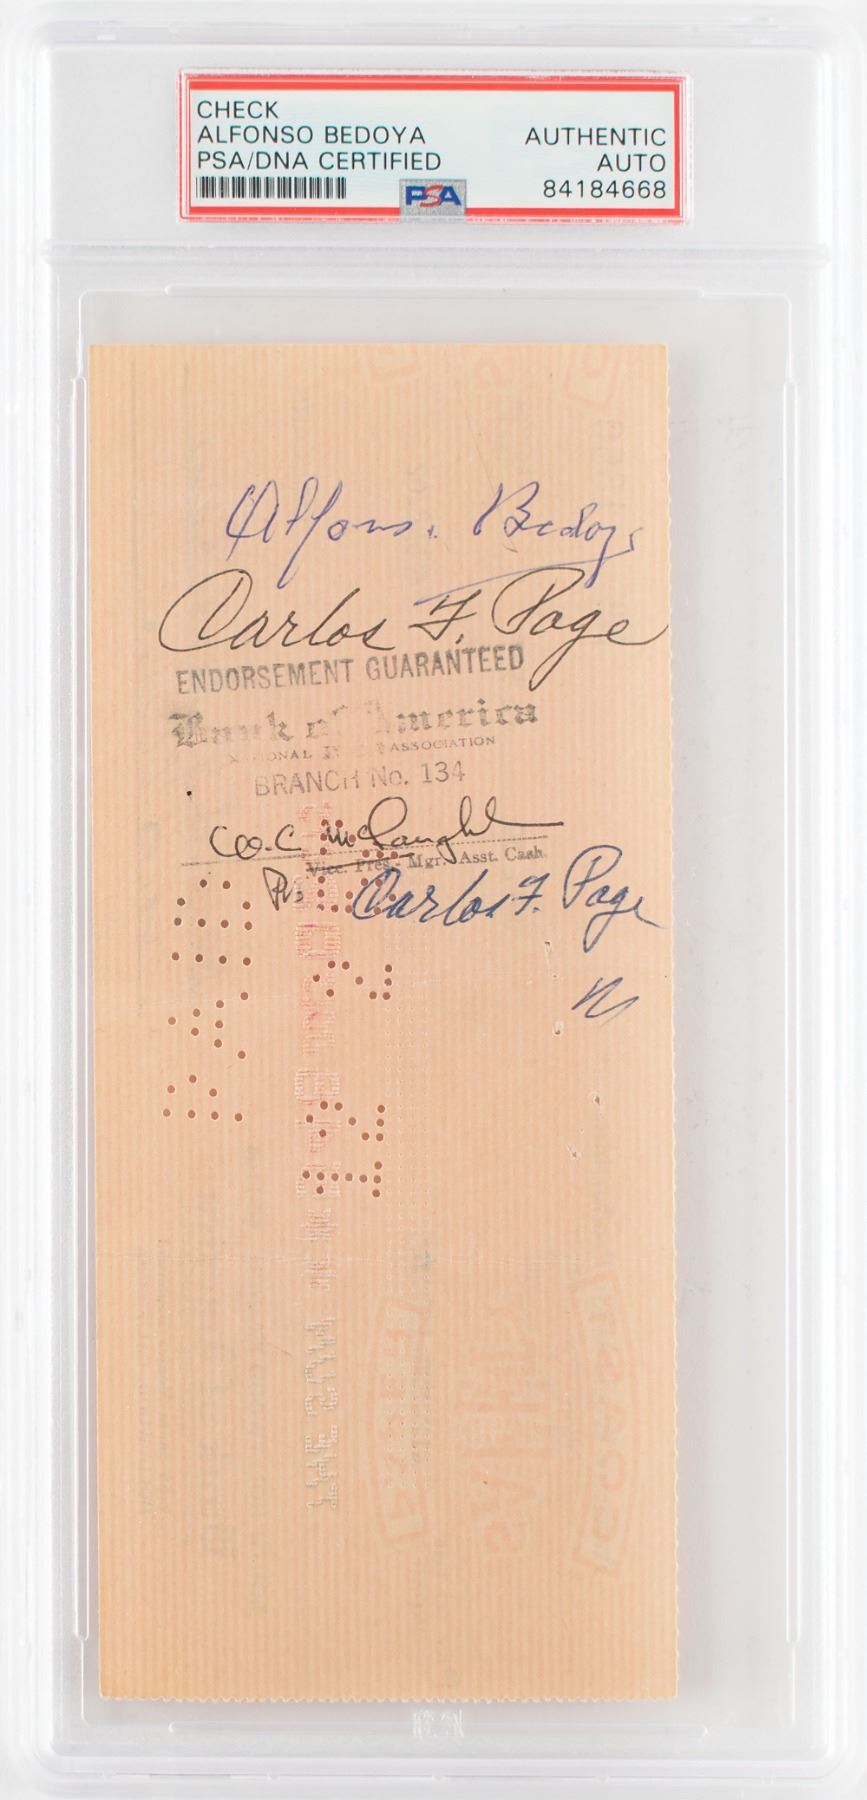 CHECK
ALFONSO BEDOYA
PSA/DNA CERTIFIED
AUTHENTIC
AUTO
84184668
PSA
Alfonso Bedoya
Carlos F. Page
ENDORSEMENT GUARANTEED
Bank of America
NATIONAL ASSOCIATION
BRANCH No. 134
McLaughl
Vice. Pres - Mgr. Asst. Cash
Carlos F. Page